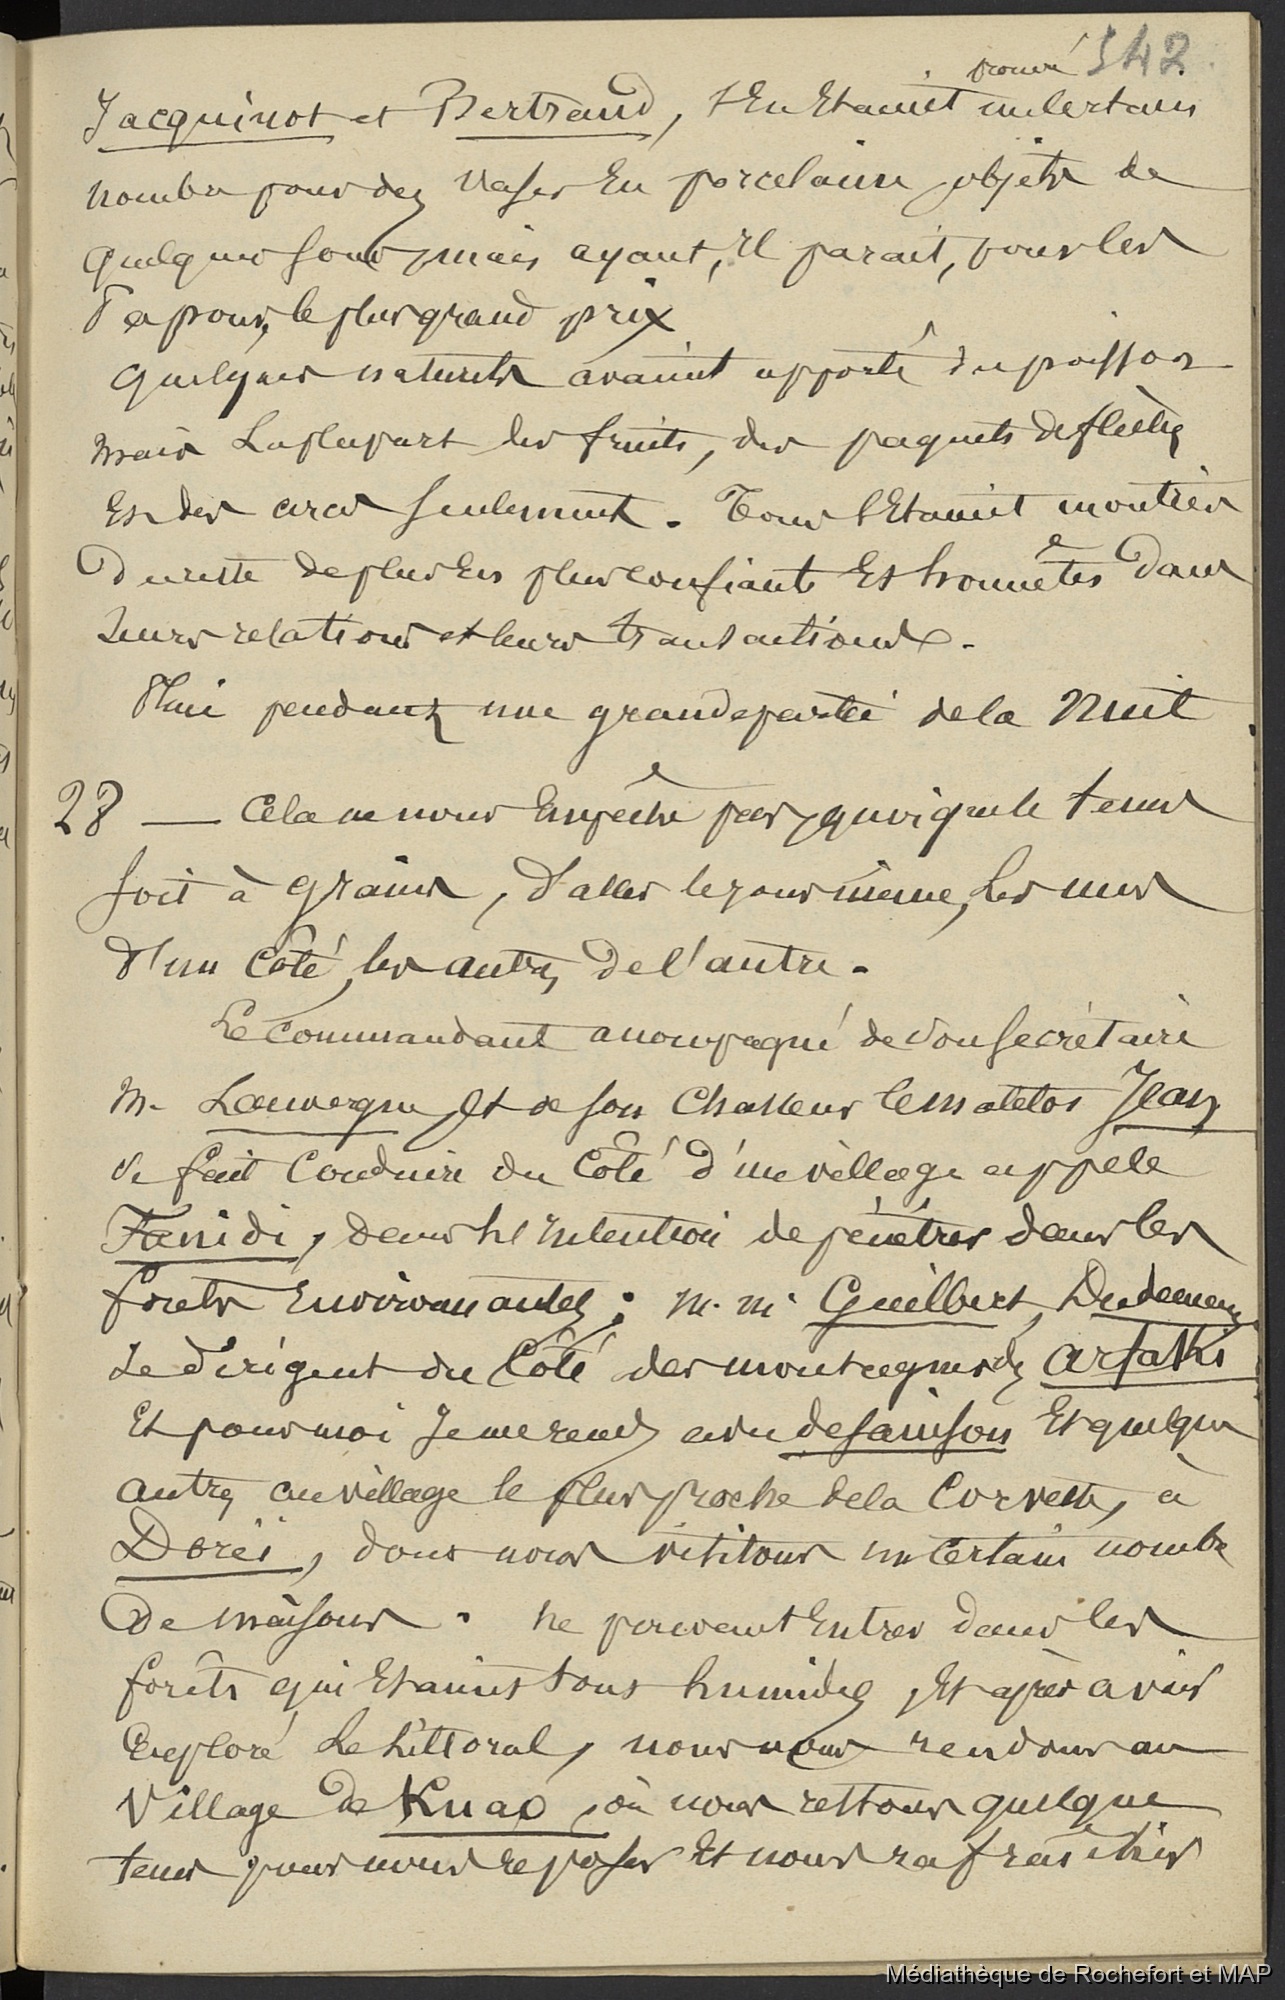 342
Jacquinot et Bertrand, s'en étaient procuré un certain
nombre pour des vases en porcelaine, objets de
quelques sous, mais ayant, il parait, pour les
Papous, le plus grand prix
Quelques naturels avaient apporté du poisson
mais la plupart des fruits, des paquets de flèches
et des arcs seulement. Tous s'étaient montrés
du reste de plus en plus confiants et honnêtes dans
leurs relations et leurs transactions.
Pluie pendant une grande partie de la nuit
28 — Cela ne nous empêche pas, quoique le tems
soit à grains, d'aller le jour même, les uns
d'un côté, les autres de l'autre.
Le commandant accompagné de son secrétaire
M. Lauvergne, et de son chasseur le matelot Jean
se fait conduire du côté d'un village appelé
Fanidi, dans l'intention de pénétrer dans les
forets environnantes; M. M. Guilbert, Dudemaine
se dirigent du côté des montagnes des Arfakis
et pour moi je me rends avec de Sainson et quelques
autres au village le plus proche de la Corvette, à
Doréi, dont nous visitons un certain nombre
de maisons. Ne pouvant entrer dans les
forêts qui étaient tout humides, et après avoir
exploré le littoral, nous nous rendons au
village de Kuao, où nous restons quelque
tems pour nous reposer et nous rafraîchir
Médiathèque de Rochefort et MAP